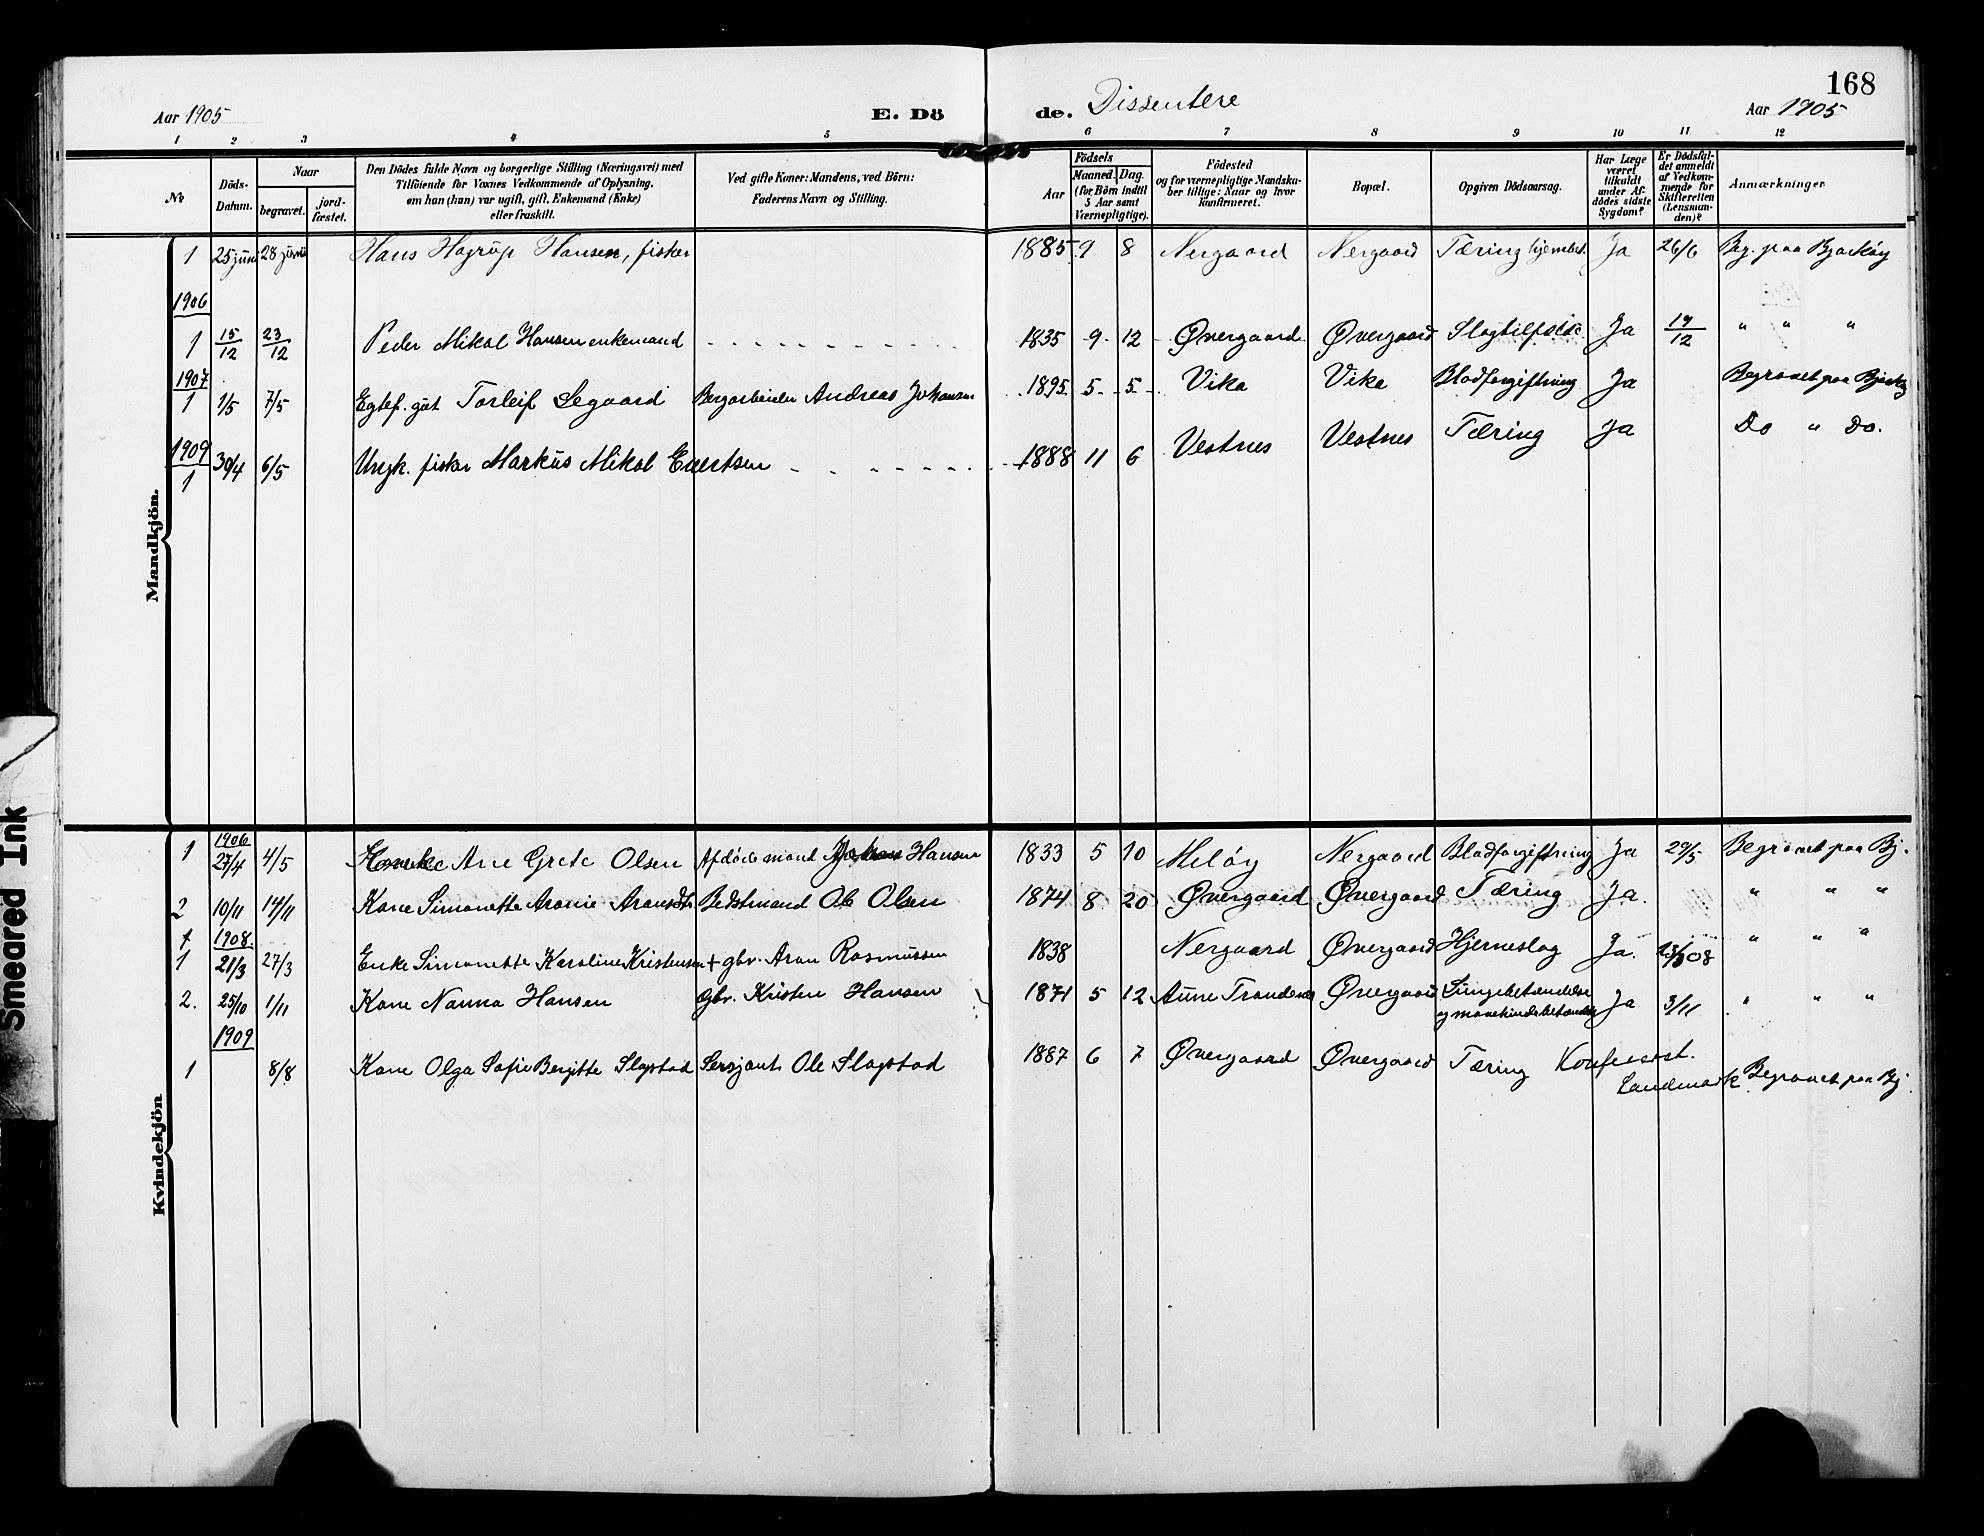 168
Aar 1905 E. Dö de. Dissentere Aar 1905
1 2 3 4 5 6 7 8 9 10 11 12
No
Döds-Datum.
Naar
begravet.
jord-fæstet.
Den Dödes fulde Navn og borgerlige Stilling (Næringsvei) med
Tilföiende for Voxnes Vedkommende af Oplysning,
om han (hun) var ugift, gift, Enkemand (Enke)
eller fraskilt.
Ved gifte Koner: Mandens, ved Börn:
Faderens Navn og Stilling.
Födsels
Aar
Maaned. Dag.
(for Börn indtil
5 Aar samt
Værnepligtige).
Födested
og for værnepligtige Mandska-
ber tillige: Naar og hvor
konfirmeret.
Bopæl.
Opgiven Dödsaarsag.
Har Læge
været
tilkaldt
under Af-
dödes sidste
Sygdom?
Er Dödsfal-
det anmeldt
af Vedkom-
mende for
Skifteretten
(Lensman-
den)?
Anmærkninger
Mandkjön.
1 25 juni 28 juni Hans Hagrup Hansen, fisker 1885 9 8 Nergaard Nergaard Tæring hjembest. Ja 26/6 Beg. paa Bjarköy
1906
1 15/12 23/12 Peder Mikal Hansen enkemand 1835 9 12 Øvergaard Øvergaard Slagtilfælde Ja 19/12 " " "
1907
1 1/5 7/5 Egtef. gut Torleif Segaard Bergarbeider Andreas Johansen 1895 5 5 Vika Vika Blodforgiftning Ja Begravet paa Bjarkøy
1909
1 30/4 6/5 Ungk. fisker Markus Mikal Evertsen 1888 11 6 Vestnes Vestnes Tæring Ja Do " Do.
Kvindekjön
1906
1 27/4 4/5 Ane Grete Olsen Afdöde mand Johan Hansen 1833 5 10 Melöy Nergaard Blodforgiftning Ja 29/5 Begravet paa Bj.
2 10/11 14/11 Kone Simonette Aronie Bedstmand Ole Olsen 1874 8 20 Øvergaard Øvergaard Tæring Ja. " " "
1908.
1 21/3 27/3 Enke Simonette Karoline Kristensen + gbr. Aron Rasmussen 1838 Nergaard Øvergaard Hjerneslag Ja. " " "
2. 25/10 1/11 Kone Nanna Hansen Gbr. Kristen Hansen 1871 5 12 Aune Trondenes Øvergaard Lungebetændelse Ja 3/11 " " "
1909
1 8/8 Kone Olga Sofie Bergitte Slagstad Sersjant Ole Slagstad 1887 6 7 Øvergaard Øvergaard Tæring Landmark Begravet paa Bj
Smeared Ink